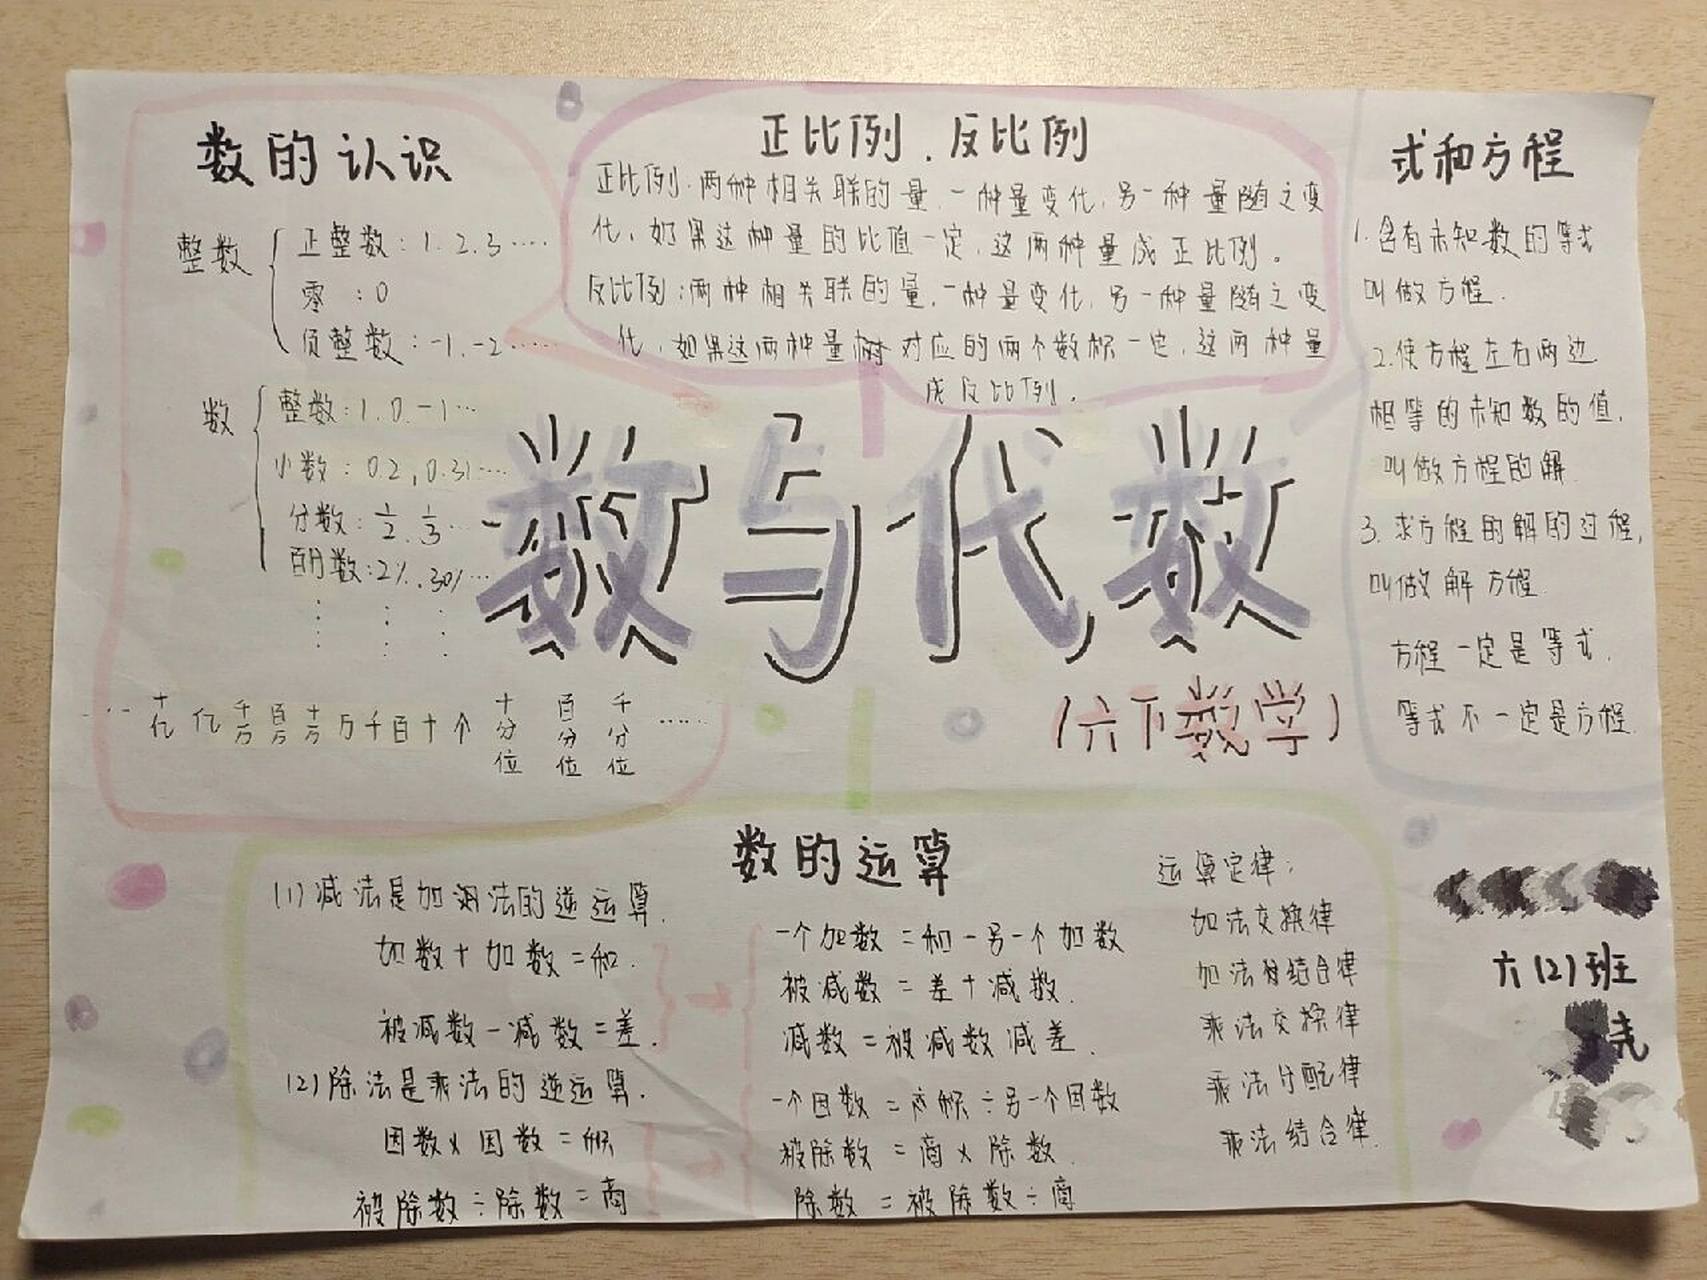 数的认识
整数
正整数：1.2.3……
零：0
负整数：-1.-2……
数
整数：1.0.-1…
小数：0.2,0.31…
分数：1/2.1/3…
百分数：2%.30%…
……十亿 亿 千万 百万 十万 万 千 百 十 个 十分位 百分位 千分位……
正比例、反比例
正比例：两种相关联的量，一种量变化，另一种量随之变
化，如果这两种量的比值一定，这两种量成正比例。
反比例：两种相关联的量，一种量变化，另一种量随之变
化，如果这两种量相对应的两个数积一定，这两种量
成反比例.
式和方程
1.含有未知数的等式
叫做方程.
2.使方程左右两边
相等的未知数的值，
叫做方程的解
3.求方程的解的过程，
叫做解方程.
方程一定是等式.
等式不一定是方程.
数与代数
(六下数学)
数的运算
(1)减法是加法的逆运算.
加数+加数=和.
被减数-减数=差.
(2)除法是乘法的逆运算.
因数×因数=积
被除数÷除数=商
一个加数=和-另一个加数
被减数=差+减数.
减数=被减数减差.
一个因数=积÷另一个因数
被除数=商×除数.
除数=被除数÷商
运算定律：
加法交换律
加法结合律
乘法交换律
乘法分配律
乘法结合律.
六(2)班